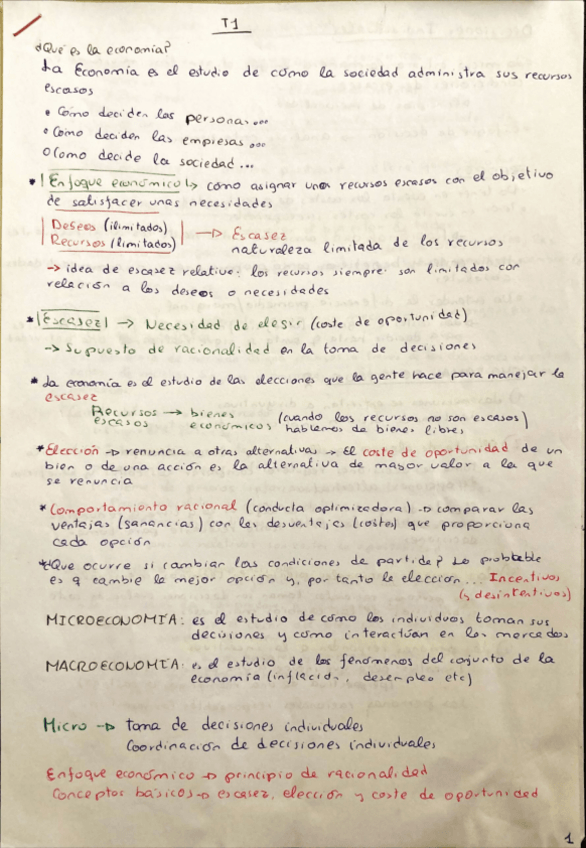 T1
¿Qué es la economía?
La Economía es el estudio de cómo la sociedad administra sus recursos
escasos
• Cómo deciden las personas...
• Cómo deciden las empresas...
• Cómo decide la sociedad...
* |Enfoque económico| → cómo asignar unos recursos escasos con el objetivo
de satisfacer unas necesidades
| Deseos (ilimitados) |
| Recursos (limitados) | → Escasez
naturaleza limitada de los recursos
→ idea de escasez relativa: los recursos siempre son limitados con
relación a los deseos o necesidades
* |Escasez| → Necesidad de elegir (coste de oportunidad)
→ Supuesto de racionalidad en la toma de decisiones
* La economía es el estudio de las elecciones que la gente hace para manejar la
escasez
Recursos escasos → bienes económicos (cuando los recursos no son escasos hablamos de bienes libres)
* Elección → renuncia a otras alternativas → El coste de oportunidad de un
bien o de una acción es la alternativa de mayor valor a la que
se renuncia
* Comportamiento racional (conducta optimizadora) → comparar las
ventajas (ganancias) con las desventajas (costes) que proporciona
cada opción
* ¿Que ocurre si cambian las condiciones de partida? Lo probable
es q cambie la mejor opción y, por tanto la elección... Incentivos
(y desintentivos)
MICROECONOMÍA: es el estudio de cómo los individuos toman sus
decisiones y cómo interactúan en los mercados
MACROECONOMÍA: es el estudio de los fenómenos del conjunto de la
economía (inflación, desempleo etc)
Micro → toma de decisiones individuales
Coordinación de decisiones individuales
Enfoque económico → principio de racionalidad
Conceptos básicos → escasez, elección y coste de oportunidad
1